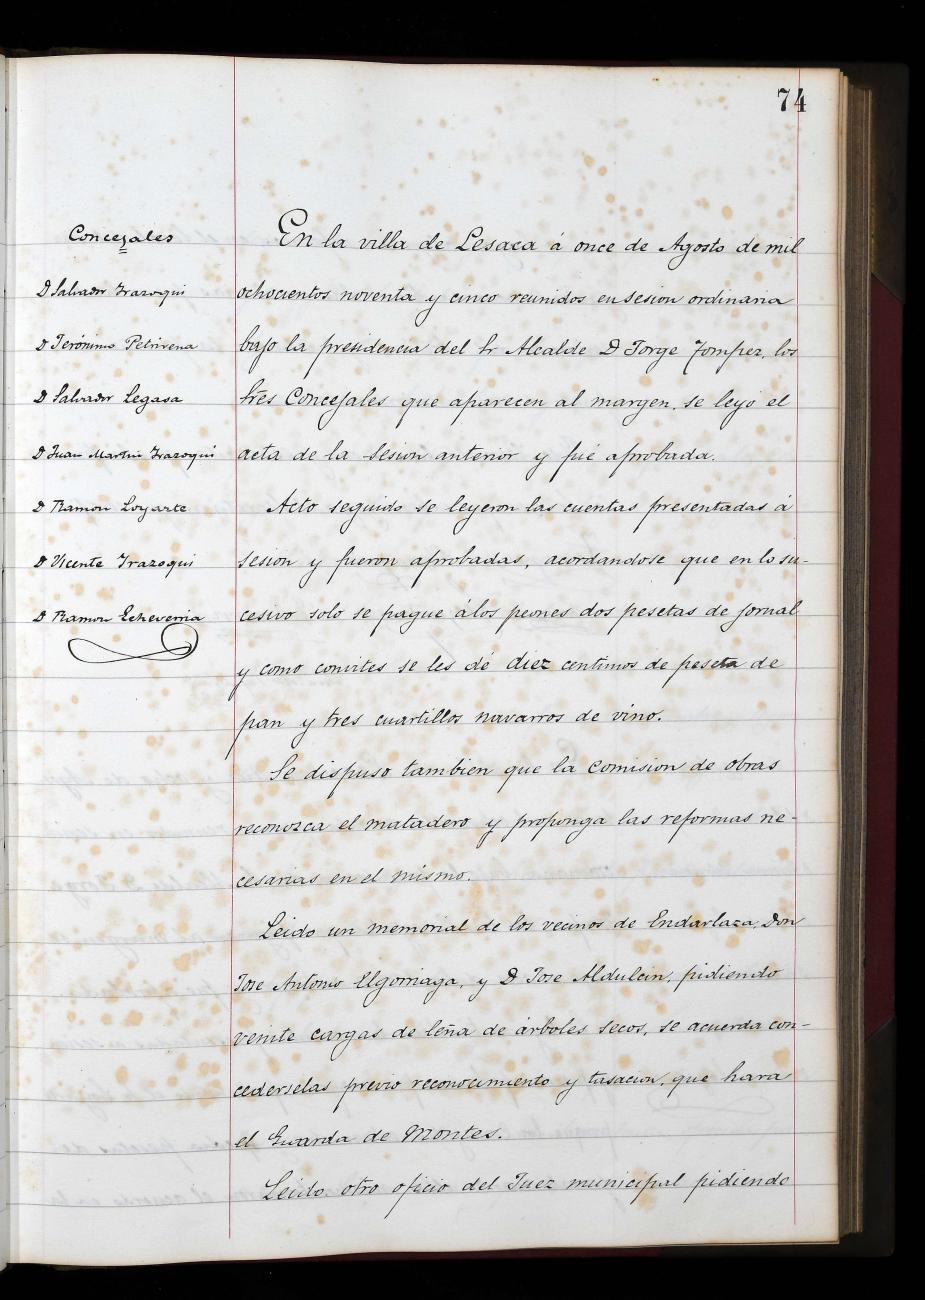 74
Concejales
D Salvador Irazoqui
D Jerónimo Petrirena
D Salvador Legasa
D Juan Martin Irazoqui
D Ramon Loyarte
D Vicente Irazoqui
D Ramon Echeverria
En la villa de Lesaca á once de Agosto de mil
ochocientos noventa y cinco reunidos en sesion ordinaria
bajo la presidencia del Sr Alcalde D Jorge los
Sres Concejales que aparecen al margen, se leyó el
acta de la sesion anterior y fué aprobada.
Acto seguido se leyeron las cuentas presentadas á
sesion y fueron aprobadas, acordandose que en lo su-
cesivo solo se pague á los peones dos pesetas de jornal
y como convites se les dé diez centimos de peseta de
pan y tres cuartillos navarros de vino.
Se dispuso tambien que la Comision de obras
reconozca el matadero y proponga las reformas ne-
cesarias en el mismo.
Leido un memorial de los vecinos de Endarlaza, Don
Jose Antonio Elgorriaga, y D Jose Aldulcin, pidiendo
veinte cargas de leña de árboles secos, se acuerda con-
cederselas previo reconocimiento y tasacion, que hara
el Guarda de Montes.
Leido otro oficio del Juez municipal pidiendo